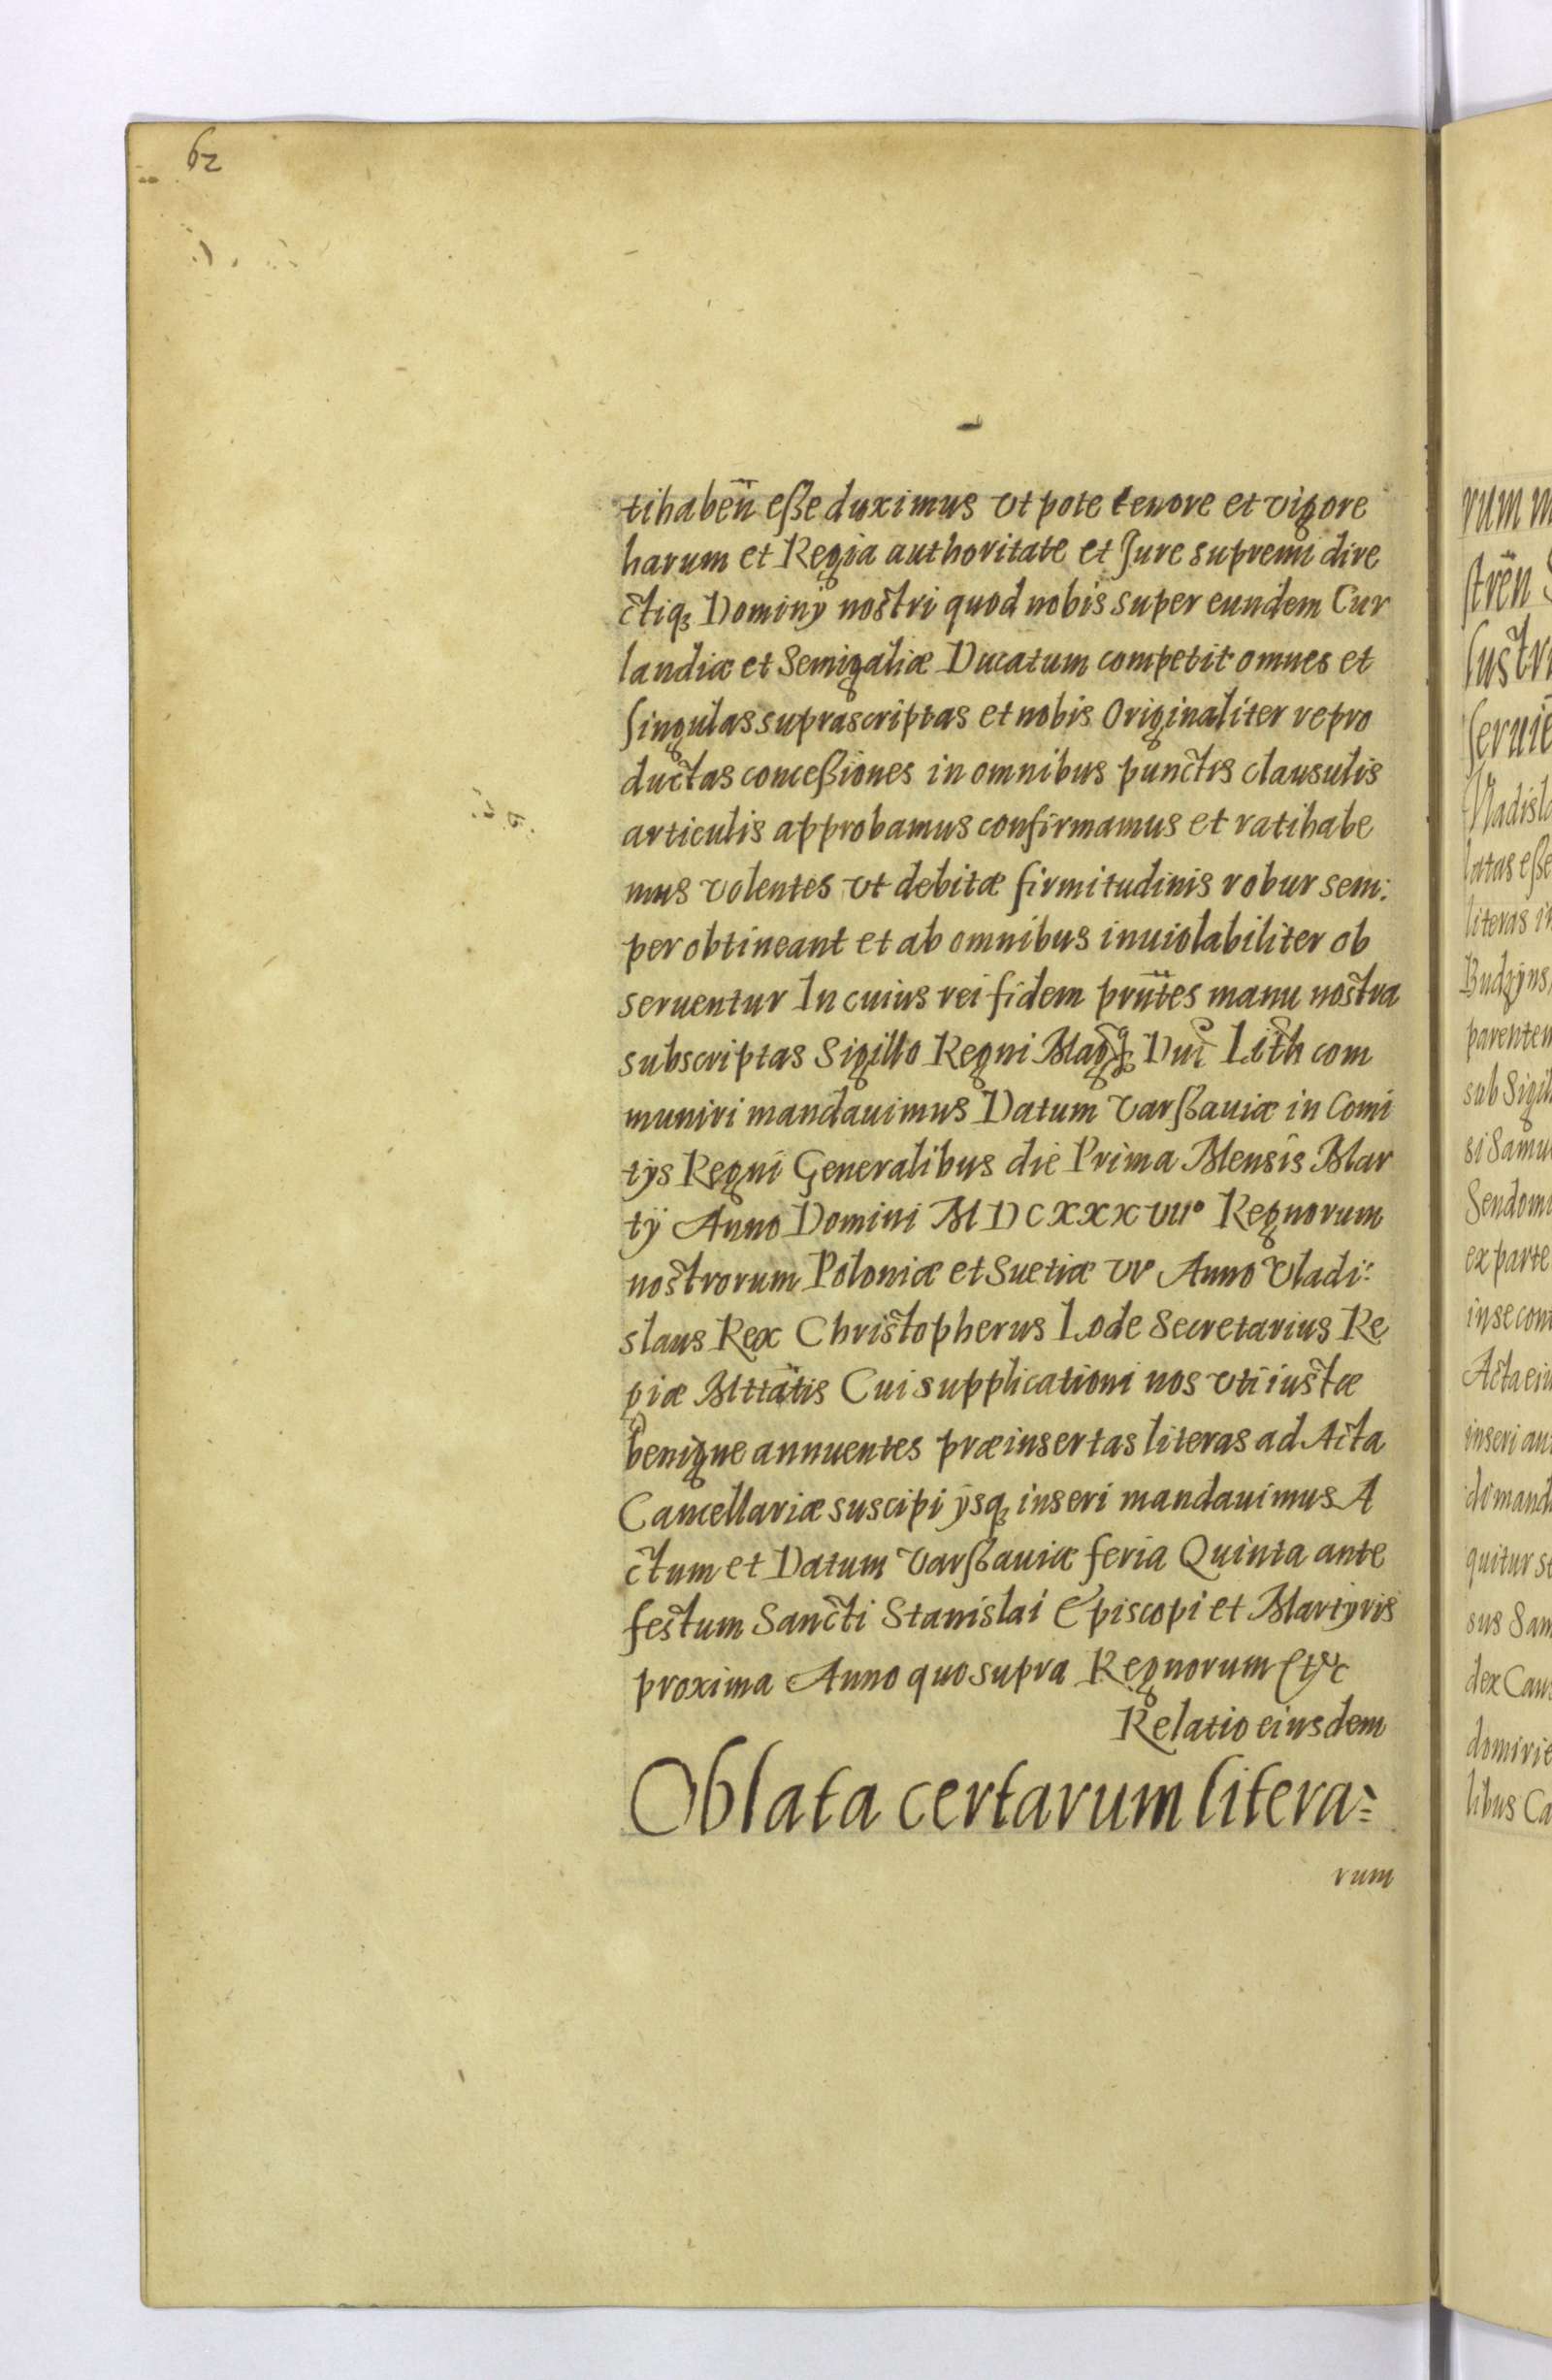 62
tihabeñ eße duximus vt pote tenore et vigore
harum et Regia authoritate et Jure supremi dire
ctiq₃ Dominÿ nostri quod nobis super eundem Cur
landiæ et Semigaliæ Ducatum competit omnes et
singulas suprascriptas et nobis Originaliter repro
ductas conceßiones in omnibus punctis clausulis
articulis approbamus confirmamus et ratihabe
mus volentes vt debitæ firmitudinis robur sem:
per obtineant et ab omnibus inuiolabiliter ob
seruentur In cuius rei fidem prñtes manu nostra
subscriptas Sigillo Regni Magq₃ Duc Lith com
muniri mandauimus Datum Varßauiæ in Comi
tÿs Regni Generalibus die Prima Mensis Mar
tÿ Anno Domini M D C X X X VII° Regnorum
nostrorum Poloniæ et Suetiæ Vº Anno Vladi:
slaus Rex Christopherus Lode Secretarius Re
giæ Mttatis Cui supplicationi nos vti iustæ
benigne annuentes præinsertas literas ad Acta
Cancellariæ suscipi ÿsq₃ inseri mandauimus A
ctum et Datum Varßauiæ feria Quinta ante
festum Sancti Stanislai Episcopi et Martyris
proxima Anno quo supra Regnorum Etc
Relatio eiusdem
Oblata certarum litera=
rum
rum m
stren̈ S
lustri
seruie
Vladisla
latas eße
literas in
Budzyns
parentem
sub Sigil
si Samu
Sendomi
ex parte
in se con
Acta eiu
inseri au
di mand
quitur se
sus Sam
dex Caus
domirie
libus Ca